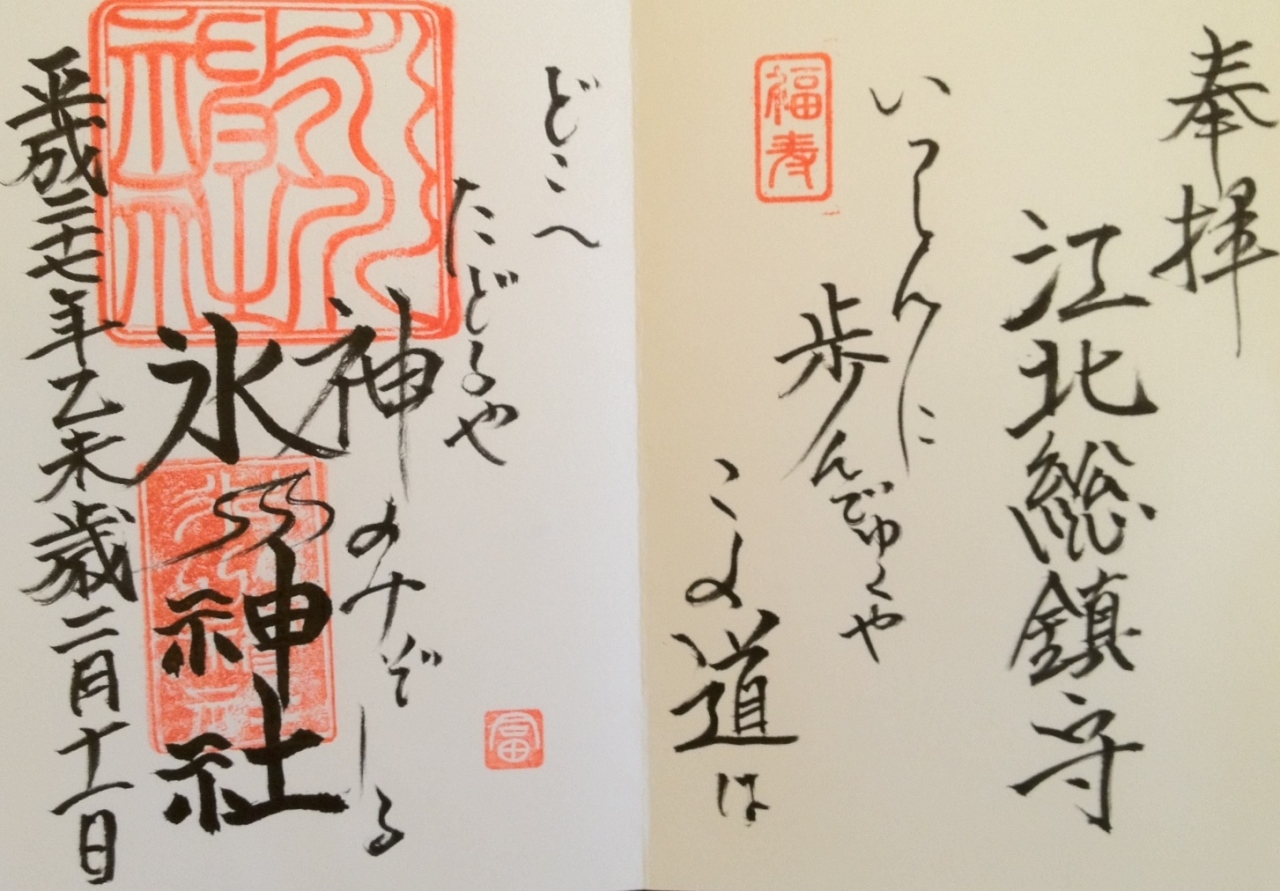 奉拝
江北総鎮守
いっしんに
福寿
歩んでゆくや
この道は
どこへ
たどるや
神のみぞしる
富
氷川神社
平成二十七年乙未歳二月十一日